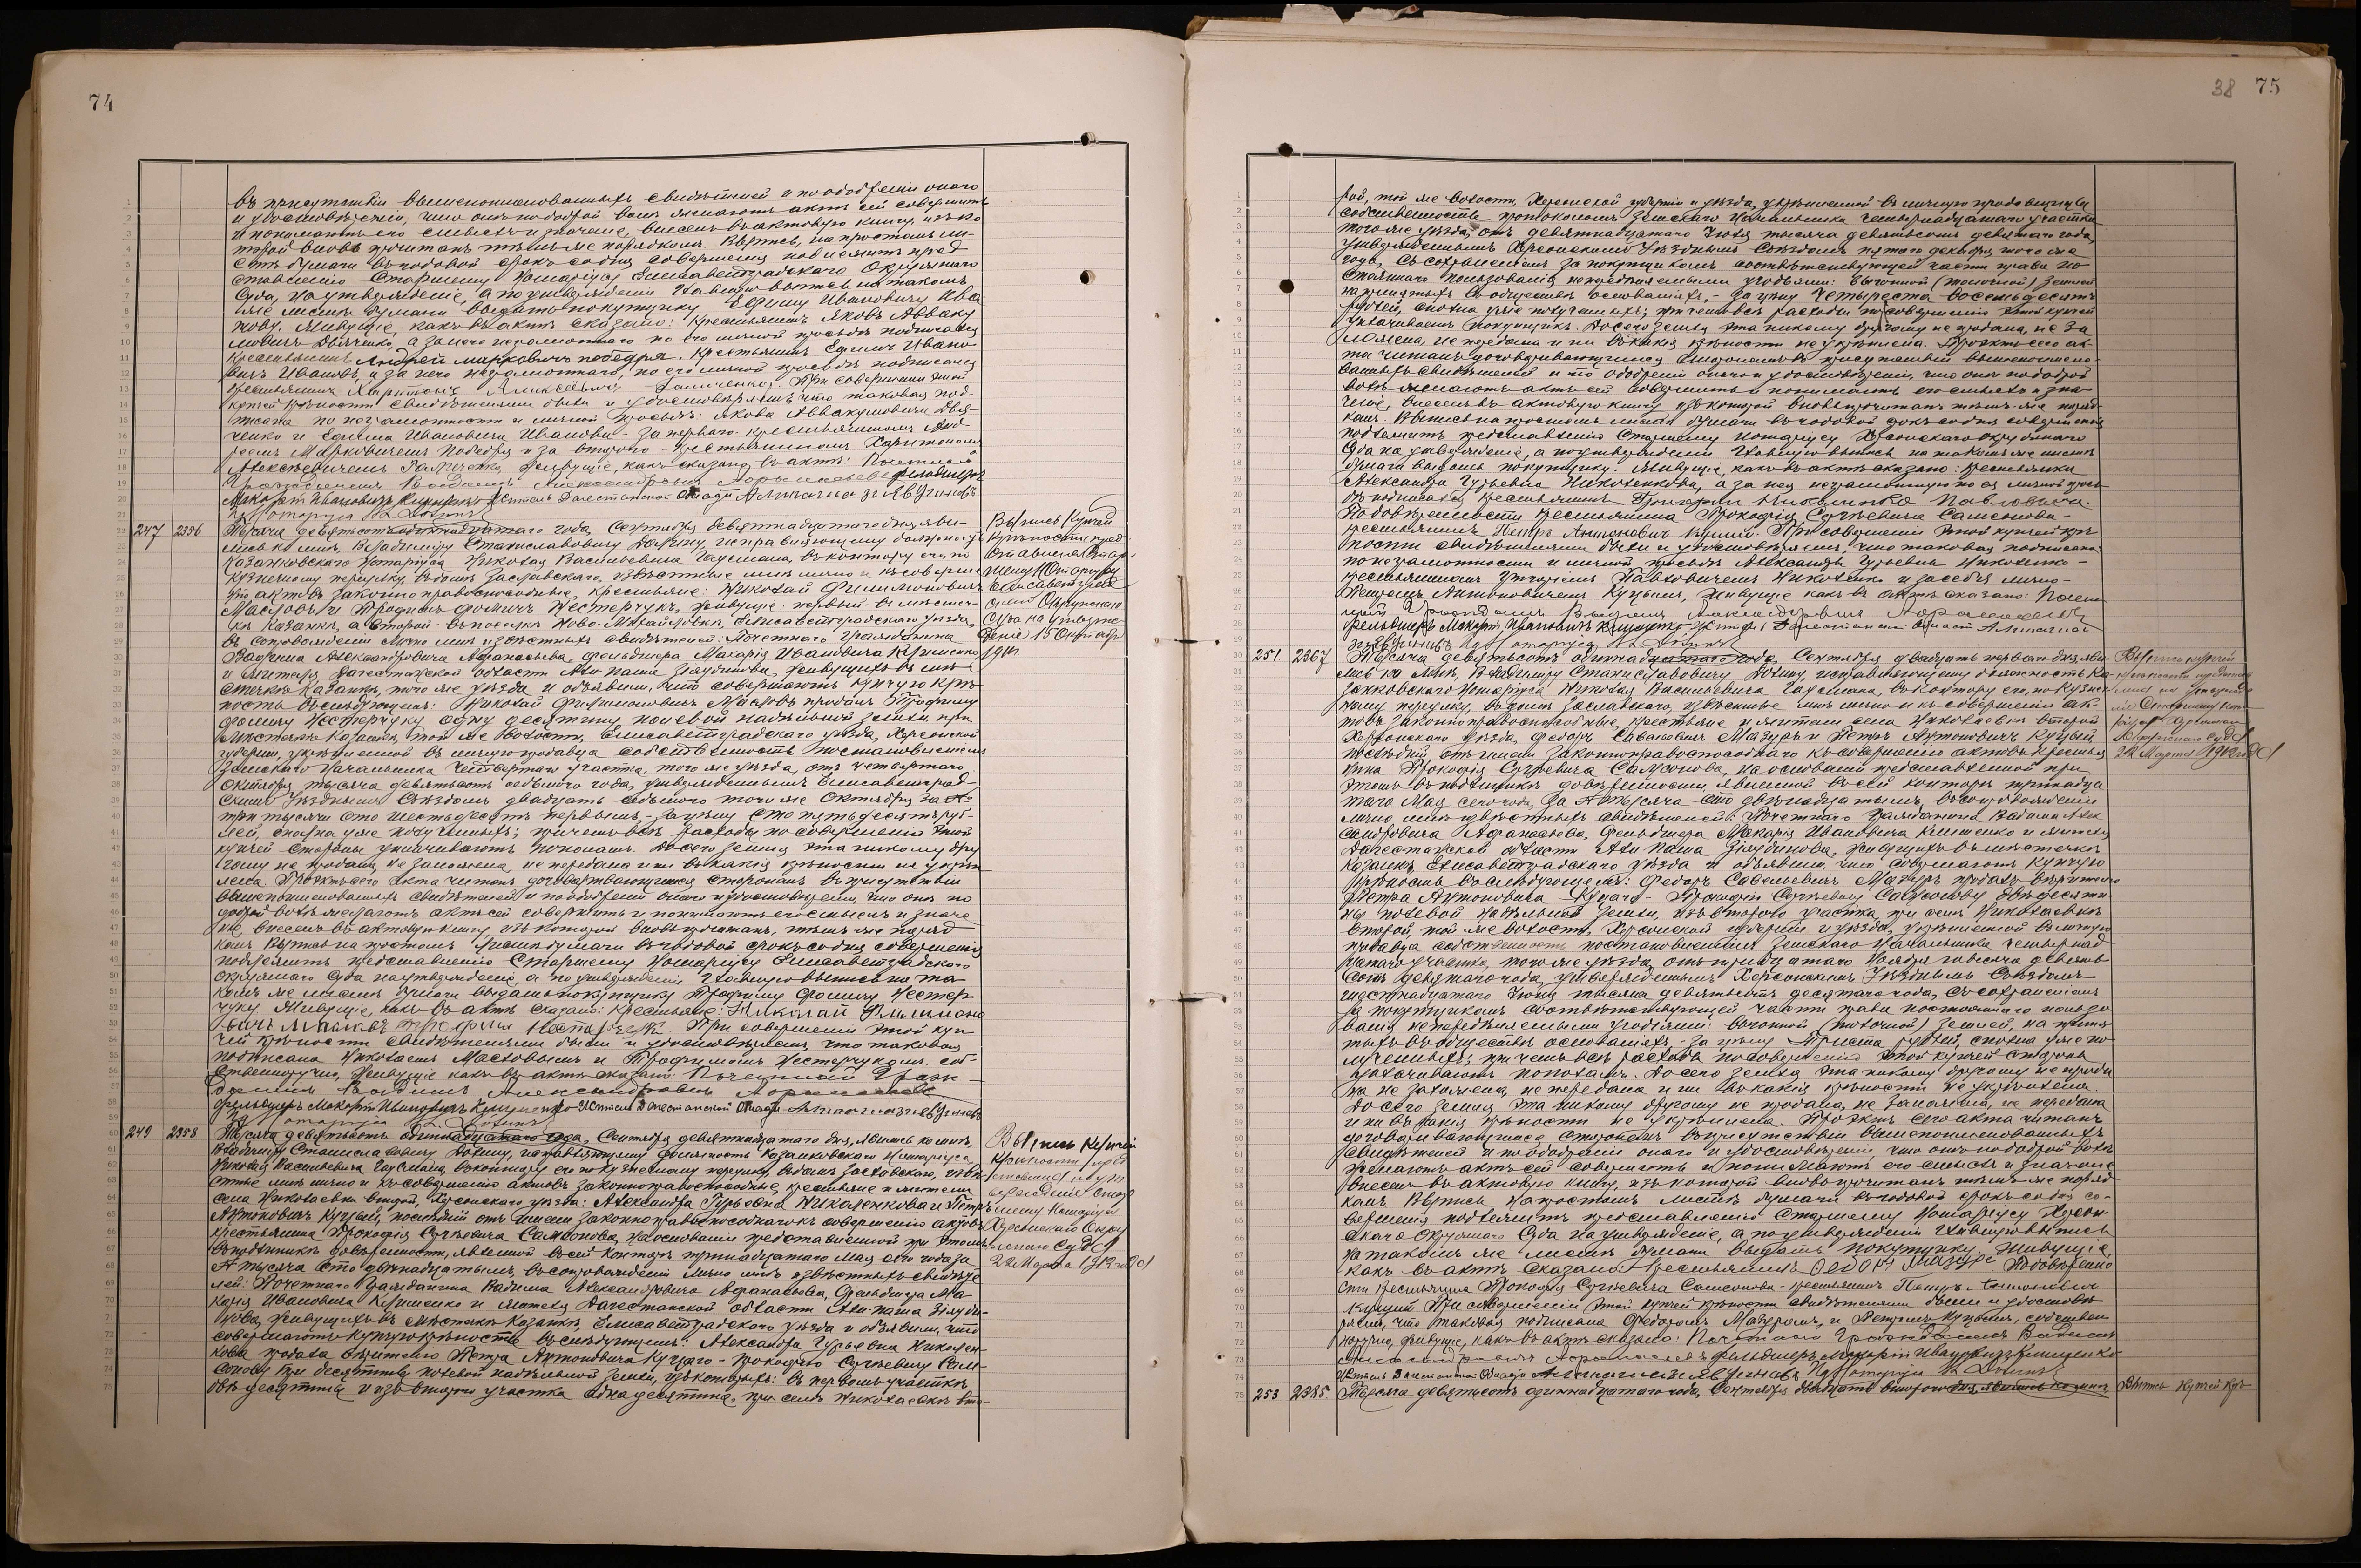 74
въ присутствіи вышепоименованныхъ свидѣтелей и по одобреніи онаго
и удостовѣреніи, что они по доброй волѣ желаютъ актъ сей совершить
и понимаютъ его смыслъ и значеніе, внесенъ въ актовую книгу, изъ ко
торой вновь прочитанъ тѣмъ же порядкомъ. Выпись, на простомъ ли-
стѣ бумаги въ годовой срокъ со дня совершенія подлежитъ пред
ставленію Старшему Нотаріусу Елисаветградскаго Окружнаго
Суда, на утвержденіе, а по утвержденіи главную выпись на такомъ
же листѣ бумаги выдать покупщику Ефиму Ивановичу Ива
нову. Живущіе, какъ въ актѣ сказано: Крестьянинъ Яковъ Авваку
мовичъ Дьяченко, а за него неграмотнаго по его личной просьбѣ подписался
крестьянинъ Андрей Марковичъ Победря. Крестьянинъ Ефимъ Ивано
вичъ Ивановъ, а за него неграмотнаго, по его личной просьбѣ подписался
крестьянинъ Харитонъ Алексѣевичъ При совершеніи этой
купчей крѣпости свидѣтелями были и удостовѣряемъ, что таковая под-
писана по неграмотности и личной просьбѣ: Якова Аввакумовича Дья-
ченко и Ефима Ивановича Иванова - за перваго крестьяниномъ Анд-
реемъ Марковичемъ Победря и за второго - крестьяниномъ Харитономъ
Алексѣевичемъ живущіе, какъ сказано въ актѣ: Почетный
Гражданинъ Вадимъ Александровичъ Афанасьевъ Фельдшеръ
Макарій Ивановичъ Клименко Житель Дагестанской Области
Нотаріуса
247 2356 Тысяча девятьсотъ одиннадцатаго года, Сентября девятнадцатаго дня, яви-
лись ко мнѣ, Владимиру Станиславовичу исправляющему должность
Казанковскаго Нотаріуса Николая Васильевича въ контору его, по
Кузнечному переулку, въ домѣ Заславскаго, извѣстные мнѣ лично и къ соверше
нію актовъ законно правоспособные, крестьяне: Николай Филимоновичъ
Масловъ и Трофимъ Фомичъ Нестерчукъ, живущіе: первый въ мѣстеч-
кѣ Казанкѣ, а второй - въ поселкѣ Ново-Михайловкѣ, Елисаветградскаго уѣзда,
въ сопровожденіи лично мнѣ извѣстныхъ свидѣтелей: Почетнаго Гражданина
Вадима Александровича Афанасьева, фельдшера Макарія Ивановича Клименко
и жителя Дагестанской области Али-Паша Зіяудинова, живущихъ въ мѣ-
стечкѣ Казанкѣ, того же уѣзда и объявили, что совершаютъ купчую крѣ-
пость въ слѣдующемъ: Николай Филимоновичъ Масловъ продалъ Трофиму
Фомичу Нестерчуку одну десятину полевой надѣльной земли, при
мѣстечкѣ Казанкѣ, той же волости, Елисаветградскаго уѣзда, Херсонской
губерніи, укрѣпленной въ личную продавца собственность постановленіемъ
Земскаго Начальника Четвертаго участка, того же уѣзда, отъ четвертаго
октября тысяча девятьсотъ седьмого года, утвержденнымъ Елисаветград-
скимъ Уѣзднымъ Съѣздомъ двадцать седьмого того же Октября за №
три тысячи сто шестьдесятъ первымъ, - за цѣну сто пятьдесятъ руб-
лей, сполна уже полученныхъ; причемъ всѣ расходы по совершенію этой
купчей стороны уплачиваютъ пополамъ. До сего земля эта никому дру
гому не продана, не заложена, не передана и ни въ какія крѣпости не укрѣп
лена. Проэктъ сего акта читанъ договаривающимся сторонамъ въ присутствіи
вышепоименованныхъ свидѣтелей и по одобреніи онаго и удостовѣреніи, что они по
доброй волѣ желаютъ актъ сей совершить и понимаютъ его смыслъ и значе
ніе, внесенъ въ актовую книгу, изъ которой вновь прочитанъ, тѣмъ же поряд
комъ. Выпись на простомъ листѣ бумаги въ годовой срокъ со дня совершенія
подлежитъ представленію Старшему Нотаріусу Елисаветградскаго
Окружнаго Суда на утвержденіе, а по утвержденіи главную выпись на та
комъ же листѣ бумаги выдать покупщику Трофиму Фомичу Нестер
чуку. Живущіе, какъ въ актѣ сказано: Крестьяне: Николай Филимоно
вичъ Масловъ При совершеніи этой куп
чей крѣпости свидѣтелями были и удостовѣряемъ, что таковая
подписана Николаемъ Масловымъ и Трофимомъ Нестерчукомъ соб
ственноручно, живущіе какъ въ актѣ сказано: Почетный Граж-
данинъ Вадимъ Александровичъ Афанасьевъ
Фельдшеръ Макарій Ивановичъ Клименко Житель Дагестанской Области
Нотаріуса
Выпись Купчей
крѣпости пред
ставлена Стар
шему Нотаріусу
Елисаветград
скаго Окружнаго
Суда на утверж-
деніе 15 Октября
1911
249 2358 Тысяча девятьсотъ одиннадцатаго года, Сентября девятнадцатаго дня, явились ко мнѣ,
Владимиру Станиславовичу исправляющему должность Казанковскаго Нотаріуса
Николая Васильевича въ контору его по Кузнечному переулку, въ домѣ Заславскаго, извѣ
стные мнѣ лично и къ совершенію актовъ законно правоспособные, крестьяне и жители
села Николаевка второй, Херсонскаго уѣзда: Александра Гурьевна Николенкова и Петръ
Антоновичъ Куцый, послѣдній отъ имени законно правоспособнаго къ совершенію актовъ
крестьянина Прокофія Сергѣевича Самсонова, на основаніи представленной при этомъ
въ подлинникѣ довѣренности, явленной въ сей конторѣ тринадцатаго Мая сего года за
№ тысяча сто двѣнадцатымъ, въ сопровожденіи лично мнѣ извѣстныхъ свидѣте
лей: Почетнаго Гражданина Вадима Александровича Афанасьева, Фельдшера Ма
карія Ивановича Клименко и жителя Дагестанской области Али-паша Зіяуди-
нова, живущихъ въ мѣстечкѣ Казанкѣ, Елисаветградскаго уѣзда и объявили, что
совершаютъ купчую крѣпость въ слѣдующемъ: Александра Гурьевна Николен
кова продала вѣрителю Петра Антоновича Куцаго - Прокофію Сергѣевичу Сам-
сонову три десятины полевой надѣльной земли, изъ коихъ: въ первомъ участкѣ
двѣ десятины и изъ второго участка одна десятина, при селѣ Николаевкѣ вто-
Выпись Купчей
крѣпости пред
ставлена на ут
вержденіе Стар
шему Нотаріусу
Херсонскаго Окру
жнаго Суда
22 Марта 1912 года
38 75
рой, той же волости, Херсонской губерніи и уѣзда, укрѣпленной въ личную продавщицы
собственность протоколомъ Земскаго Начальника четырнадцатаго участка
того же уѣзда, отъ девятнадцатаго Іюля тысяча девятьсотъ девятаго года,
утвержденнымъ Херсонскимъ Уѣзднымъ Съѣздомъ пятаго декабря того же
года, съ сохраненіемъ за покупщикомъ соотвѣтствующей части права по
стояннаго пользованія непередѣляемыми угодьями: выгонной (толочной) землей
на принятыхъ въ обществѣ основаніяхъ, - за цѣну четыреста восемьдесятъ
рублей, сполна уже полученныхъ; причемъ всѣ расходы по совершенію этой купчей
уплачиваетъ покупщикъ. До сего земля эта никому другому не продана, не за
ложена, не передана и ни въ какія крѣпости не укрѣплена. Проэктъ сего ак-
та читанъ договаривающимся сторонамъ въ присутствіи вышепоимено-
ванныхъ свидѣтелей и по одобреніи онаго и удостовѣреніи, что они по доброй
волѣ желаютъ актъ сей совершить и понимаютъ его смыслъ и зна-
ченіе, внесенъ въ актовую книгу изъ которой вновь прочитанъ тѣмъ же поряд-
комъ. Выпись на простомъ листѣ бумаги въ годовой срокъ со дня совершенія
подлежитъ представленію Старшему Нотаріусу Херсонскаго Окружнаго
Суда на утвержденіе, а по утвержденіи главную выпись на такомъ же листѣ
бумаги выдать покупщику. Живущіе, какъ въ актѣ сказано: Крестьянка
Александра Гурьевна Николенкова, а за нея неграмотную по ея личной прось-
бѣ подписался крестьянинъ Григорій Николенко Павловичъ.
По довѣренности крестьянина Прокофія Сергѣевича Самсонова -
крестьянинъ Петръ Антоновичъ Куцый. При совершеніи этой купчей крѣ-
пости свидѣтелями были и удостовѣряемъ, что таковая подписана:
по неграмотности и личной просьбѣ Александры Гурьевны Николенко-
крестьяниномъ Григоріемъ Павловичемъ Николенко и за себя лично -
Петромъ Антоновичемъ Куцымъ, живущіе какъ въ актѣ сказано: Почет
ный Гражданинъ Вадимъ Александровичъ Афанасьевъ
Фельдшеръ Макарій Ивановичъ Клименко Житель Дагестанской Области
Нотаріуса
251 2367 Тысяча девятьсотъ одиннадцатаго года, Сентября двадцать перваго дня, яви-
лись ко мнѣ, Владимиру Станиславовичу исправляющему должность Ка-
занковскаго Нотаріуса Николая Васильевича въ контору его, по Кузнеч-
ному переулку, въ домѣ Заславскаго, извѣстные мнѣ лично и къ совершенію ак-
товъ законно правоспособные, крестьяне и жители села Николаевки второй
Херсонскаго уѣзда, Федоръ Савельевичъ Мазуръ и Петръ Антоновичъ Куцый,
послѣдній отъ имени законно правоспособнаго къ совершенію актовъ крестья
нина Прокофія Сергѣевича Самсонова, на основаніи представленной при
этомъ въ подлинникѣ довѣренности, явленной въ сей конторѣ тринадца
таго Мая сего года, за № тысяча сто двѣнадцатымъ, въ сопровожденіи
лично мнѣ извѣстныхъ свидѣтелей: Почетнаго Гражданина Вадима Алек
сандровича Афанасьева, Фельдшера Макарія Ивановича Клименко и жителя
Дагестанской области Али-Паша Зіяудинова, живущихъ въ мѣстечкѣ
Казанкѣ, Елисаветградскаго уѣзда и объявили, что совершаютъ купчую
крѣпость въ слѣдующемъ: Федоръ Савельевичъ Мазуръ продалъ вѣрителю
Петра Антоновича Куцаго - Прокофію Сергѣевичу Самсонову двѣ десяти-
ны полевой надѣльной земли, изъ второго участка, при селѣ Николаевкѣ
второй, той же волости, Херсонской губерніи и уѣзда, укрѣпленной въ личную
продавца собственность постановленіемъ Земскаго Начальника четырнад
цатаго участка, того же уѣзда, отъ тридцатаго Ноября тысяча девять
сотъ девятаго года, утвержденнымъ Херсонскимъ Уѣзднымъ Съѣздомъ
шестнадцатаго Іюня тысяча девятьсотъ десятаго года, съ сохраненіемъ
за покупщикомъ соотвѣтствующей части права постояннаго пользо
ванія непередѣляемыми угодьями: выгонной (толочной) землей, на приня-
тыхъ въ обществѣ основаніяхъ, - за цѣну триста рублей, сполна уже по-
лученныхъ; при чемъ всѣ расходы по совершенію этой купчей стороны
уплачиваютъ пополамъ. До сего земля эта никому другому не прода
на не заложена, не передана и ни въ какія крѣпости не укрѣплена.
До сего земля эта никому другому не продана, не заложена, не передана
и ни въ какія крѣпости не укрѣплена. Проэктъ сего акта читанъ
договаривающимся сторонамъ въ присутствіи вышепоименованныхъ
свидѣтелей и по одобреніи онаго и удостовѣреніи, что они по доброй волѣ
желаютъ актъ сей совершить и понимаютъ его смыслъ и значеніе
внесенъ въ актовую книгу, изъ которой вновь прочитанъ тѣмъ же поряд-
комъ. Выпись на простомъ листѣ бумаги въ годовой срокъ со дня со-
вершенія подлежитъ представленію Старшему Нотаріусу Херсон-
скаго Окружнаго Суда на утвержденіе, а по утвержденіи главную выпись
на такомъ же листѣ бумаги выдать покупщику. Живущіе,
какъ въ актѣ сказано: Крестьянинъ Федоръ Мазуръ По довѣренно
сти крестьянина Прокофія Сергѣевича Самсонова - крестьянинъ Петръ Антоновичъ
Куцый При совершеніи этой купчей крѣпости свидѣтелями были и удостовѣ
ряемъ, что таковая подписана Федоромъ Мазуромъ, и Петромъ Куцымъ, собствен
норучно, живущіе, какъ въ актѣ сказано: Почетный Гражданинъ Вадимъ
Александровичъ Афанасьевъ Фельдшеръ Макарій Ивановичъ Клименко
Житель Дагестанской Области Нотаріуса
Выпись купчей
крѣпости представ
лена на утвержде
ніе Старшему Нота
ріусу Херсонскаго
Окружнаго Суда
22 Марта 1912 года
253 2385 Тысяча девятьсотъ одиннадцатаго года, Сентября двадцать второго дня, явились ко мнѣ
Выпись Купчей Крѣ-